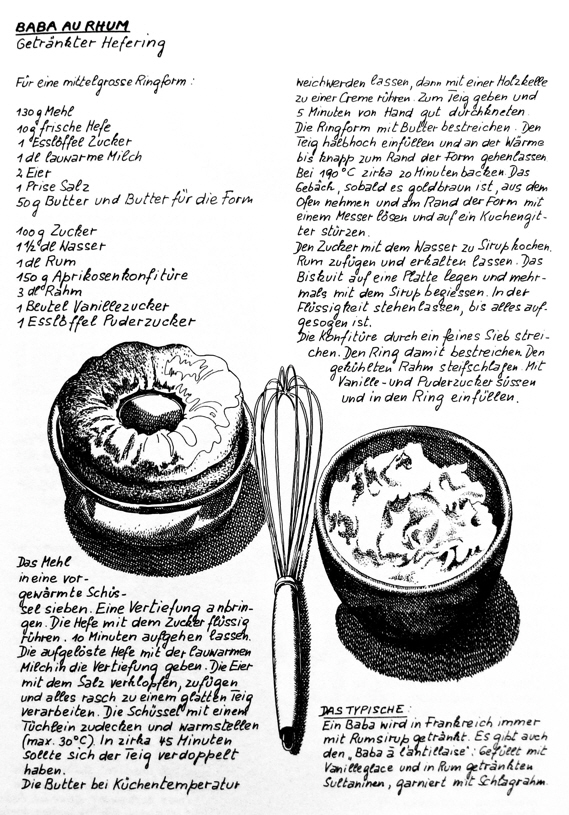 BABA AU RHUM
Getränkter Hefering
Für eine mittelgrosse Ringform:
130 g Mehl
10 g frische Hefe
1 Esslöffel Zucker
1 dl lauwarme Milch
2 Eier
1 Prise Salz
50 g Butter und Butter für die Form
100 g Zucker
1½ dl Wasser
1 dl Rum
150 g Aprikosenkonfitüre
3 dl Rahm
1 Beutel Vanillezucker
1 Esslöffel Puderzucker
Das Mehl
in eine vor-
gewärmte Schüs-
sel sieben. Eine Vertiefung anbrin-
gen. Die Hefe mit dem Zucker flüssig
rühren. 10 Minuten aufgehen lassen.
Die aufgelöste Hefe mit der lauwarmen
Milch in die Vertiefung geben. Die Eier
mit dem Salz verklopfen, zufügen
und alles rasch zu einem glatten Teig
verarbeiten. Die Schüssel mit einem
Tüchlein zudecken und warmstellen
(max. 30°C). In zirka 45 Minuten
sollte sich der Teig verdoppelt
haben.
Die Butter bei Küchentemperatur
weichwerden lassen, dann mit einer Holzkelle
zu einer Creme rühren. Zum Teig geben und
5 Minuten von Hand gut durchkneten.
Die Ringform mit Butter bestreichen. Den
Teig halbhoch einfüllen und an der Wärme
bis knapp zum Rand der Form gehenlassen.
Bei 190°C zirka 20 Minuten backen. Das
Gebäck, sobald es goldbraun ist, aus dem
Ofen nehmen und am Rand der Form mit
einem Messer lösen und auf ein Kuchengit-
ter stürzen.
Den Zucker mit dem Wasser zu Sirup kochen.
Rum zufügen und erkalten lassen. Das
Biskuit auf eine Platte legen und mehr-
mals mit dem Sirup begiessen. In der
Flüssigkeit stehenlassen, bis alles auf-
gesogen ist.
Die Konfitüre durch ein feines Sieb strei-
chen. Den Ring damit bestreichen. Den
gekühlten Rahm steifschlagen. Mit
Vanille- und Puderzucker süssen
und in den Ring einfüllen.
DAS TYPISCHE:
Ein Baba wird in Frankreich immer
mit Rumsirup getränkt. Es gibt auch
den „Baba à l'antillaise": Gefüllt mit
Vanilleglace und in Rum getränkten
Sultaninen, garniert mit Schlagrahm.